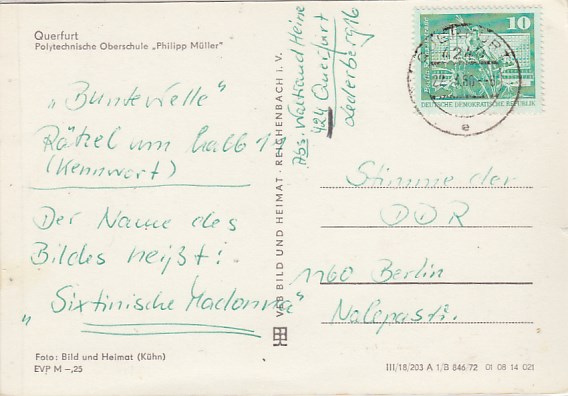 Querfurt
Polytechnische Oberschule „Philipp Müller"
„Buntewelle"
Rätzel um halb 11
(Kennwort)
Der Name des
Bildes heißt:
„Sixtinische Madonna"
Foto: Bild und Heimat (Kühn)
EVP M –,25
VEB BILD UND HEIMAT · REICHENBACH i. V.
Abs. Waltraud Heine
424 Querfurt
Lederberg 16
10
DEUTSCHE DEMOKRATISCHE REPUBLIK
QUERFURT
e
Stimme der
DDR
1160 Berlin
Nalepastr.
III/18/203 A 1/B 846/72 01 08 14 021